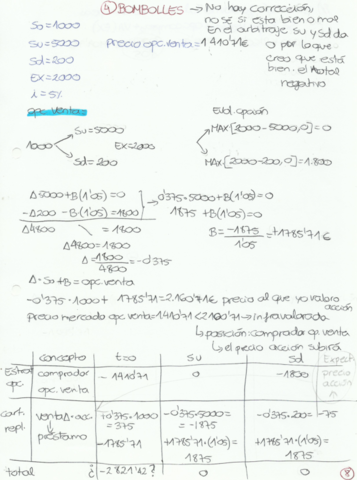 ④ BOMBOLLES → No hay corrección,
no sé si esta bien o mal
En el arbitraje su y sd da
0 por lo que
creo que está
bien. el total
negativo
So=1000
Su=5000
Sd=200
Ex=2000
i=5%
Precio opc. venta = 1410'71€
opc. venta
Evol. opción
1000
Su=5000
Sd=200
Ex=2000
MAX[2000-5000,0]=0
MAX[2000-200,0]=1.800
Δ5000+B(1'05)=0
-Δ200-B(1'05)=1800
Δ4800 = 1800
Δ4800=1800
Δ=-1800/4800=-0'375
→ 0'375·5000+B(1'05)=0
1875+B(1'05)=0
B=-1875/1'05=+1785'71€
Δ·So+B=opc.venta
-0'375·1000+1785'71=2.160'71€ precio al que yo valoro
acción
Precio mercado opc venta=1410'71<2160'71→infravalorada
↳ posición: comprador op. venta
↳ el precio acción subirá
concepto t=0 Su Sd Expect
precio
acción
Estrat opc. comprador opc. venta -1410'71 0 -1800
cart. repl. venta Δ·acc +0'375·1000=375 -0'375·5000=-1875 -0'375·200=-75
préstamo -1785'71 +1785'71·(1'05)=1875 +1785'71·(1'05)=1875
total ¿-2821'42? 0 0
⑧